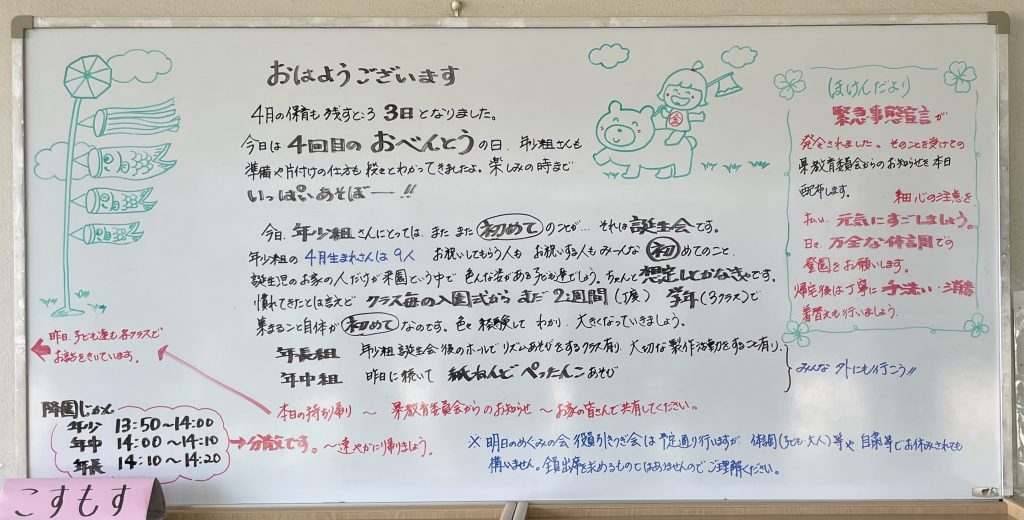 おはようございます
4月の保育も残すところ 3日となりました。
今日は 4回目の おべんとうの日、年少組さんも
準備や片付けの仕方も 段々とわかってきましたよ。楽しみの時まで
いっぱいあそぼー!!
今日、年少組さんにとっては、また また 初めてのことが… それは誕生会です。
年少組の 4月生まれさんは 9人 お祝いしてもらう人も お祝いする人もみーんな 初めてのこと、
誕生児のお家の人だけが来園という中で 色んな姿がある子ども達でしょう。ちゃんと想定しておかなきゃです。
慣れてきたとは言えど クラス毎の入園式から まだ 2週間(丁度) 学年(3クラス)で
集まること自体が 初めて なのです。色々 経験して わかり、大きくなっていきましょう。
年長組 年少組誕生会後のホールでリズムあそびをするクラス有り、大切な製作活動をすること有り、
年中組 昨日に続いて 紙ねんど ぺったんこ あそび
みんな 外にも行こう!!
本日の持ち帰り 〜 県教育委員会からのお知らせ 〜お家の皆さんで共有してください。
※ 明日のめぐみの会 役員引きつぎ会は 予定通り行いますが、体調(子ども・大人)等や 自粛等でお休みされても
構いません。全員出席を求めるものではありませんので ご理解ください。
ほけんだより
緊急事態宣言が
発令されました。そのことを受けての
県教育委員会からのお知らせを本日
配布します。 細心の注意を
払い、元気にすごしましょう。
日々 万全な体調での
登園をお願いします。
帰宅後は丁寧に 手洗い・消毒
着替えも行いましょう。
昨日、子ども達も各クラスで
お話をきいています。
降園じかん
年少 13:50〜14:00
年中 14:00〜14:10
年長 14:10〜14:20
分散です。〜速やかに帰りましょう。
こすもす